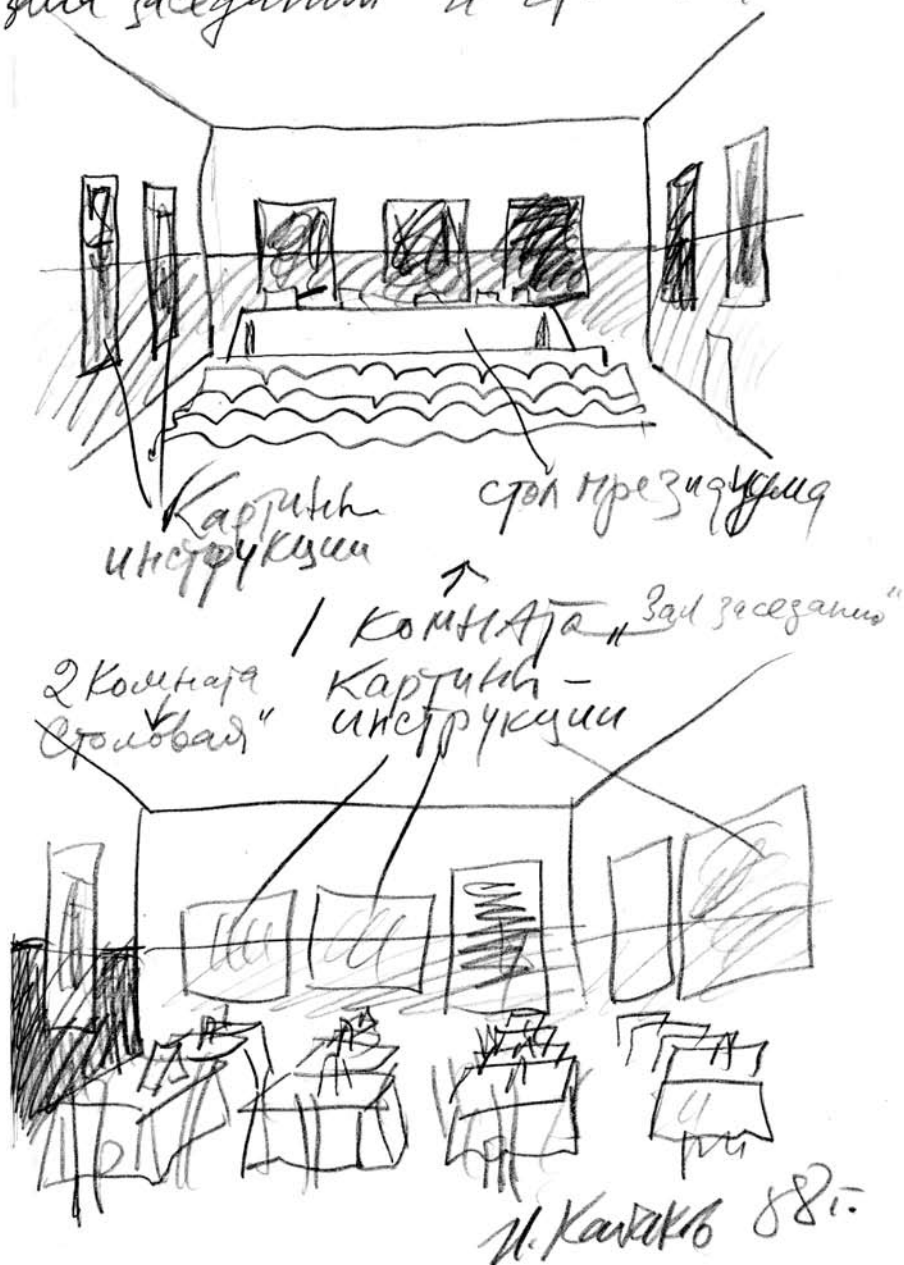 зал заседаний и
Картины
инструкции
стол президиума
1 КОМНАТА „Зал заседаний"
2 Комната
Столовая"
Картины -
инструкции
И. Кабаков 88 г.